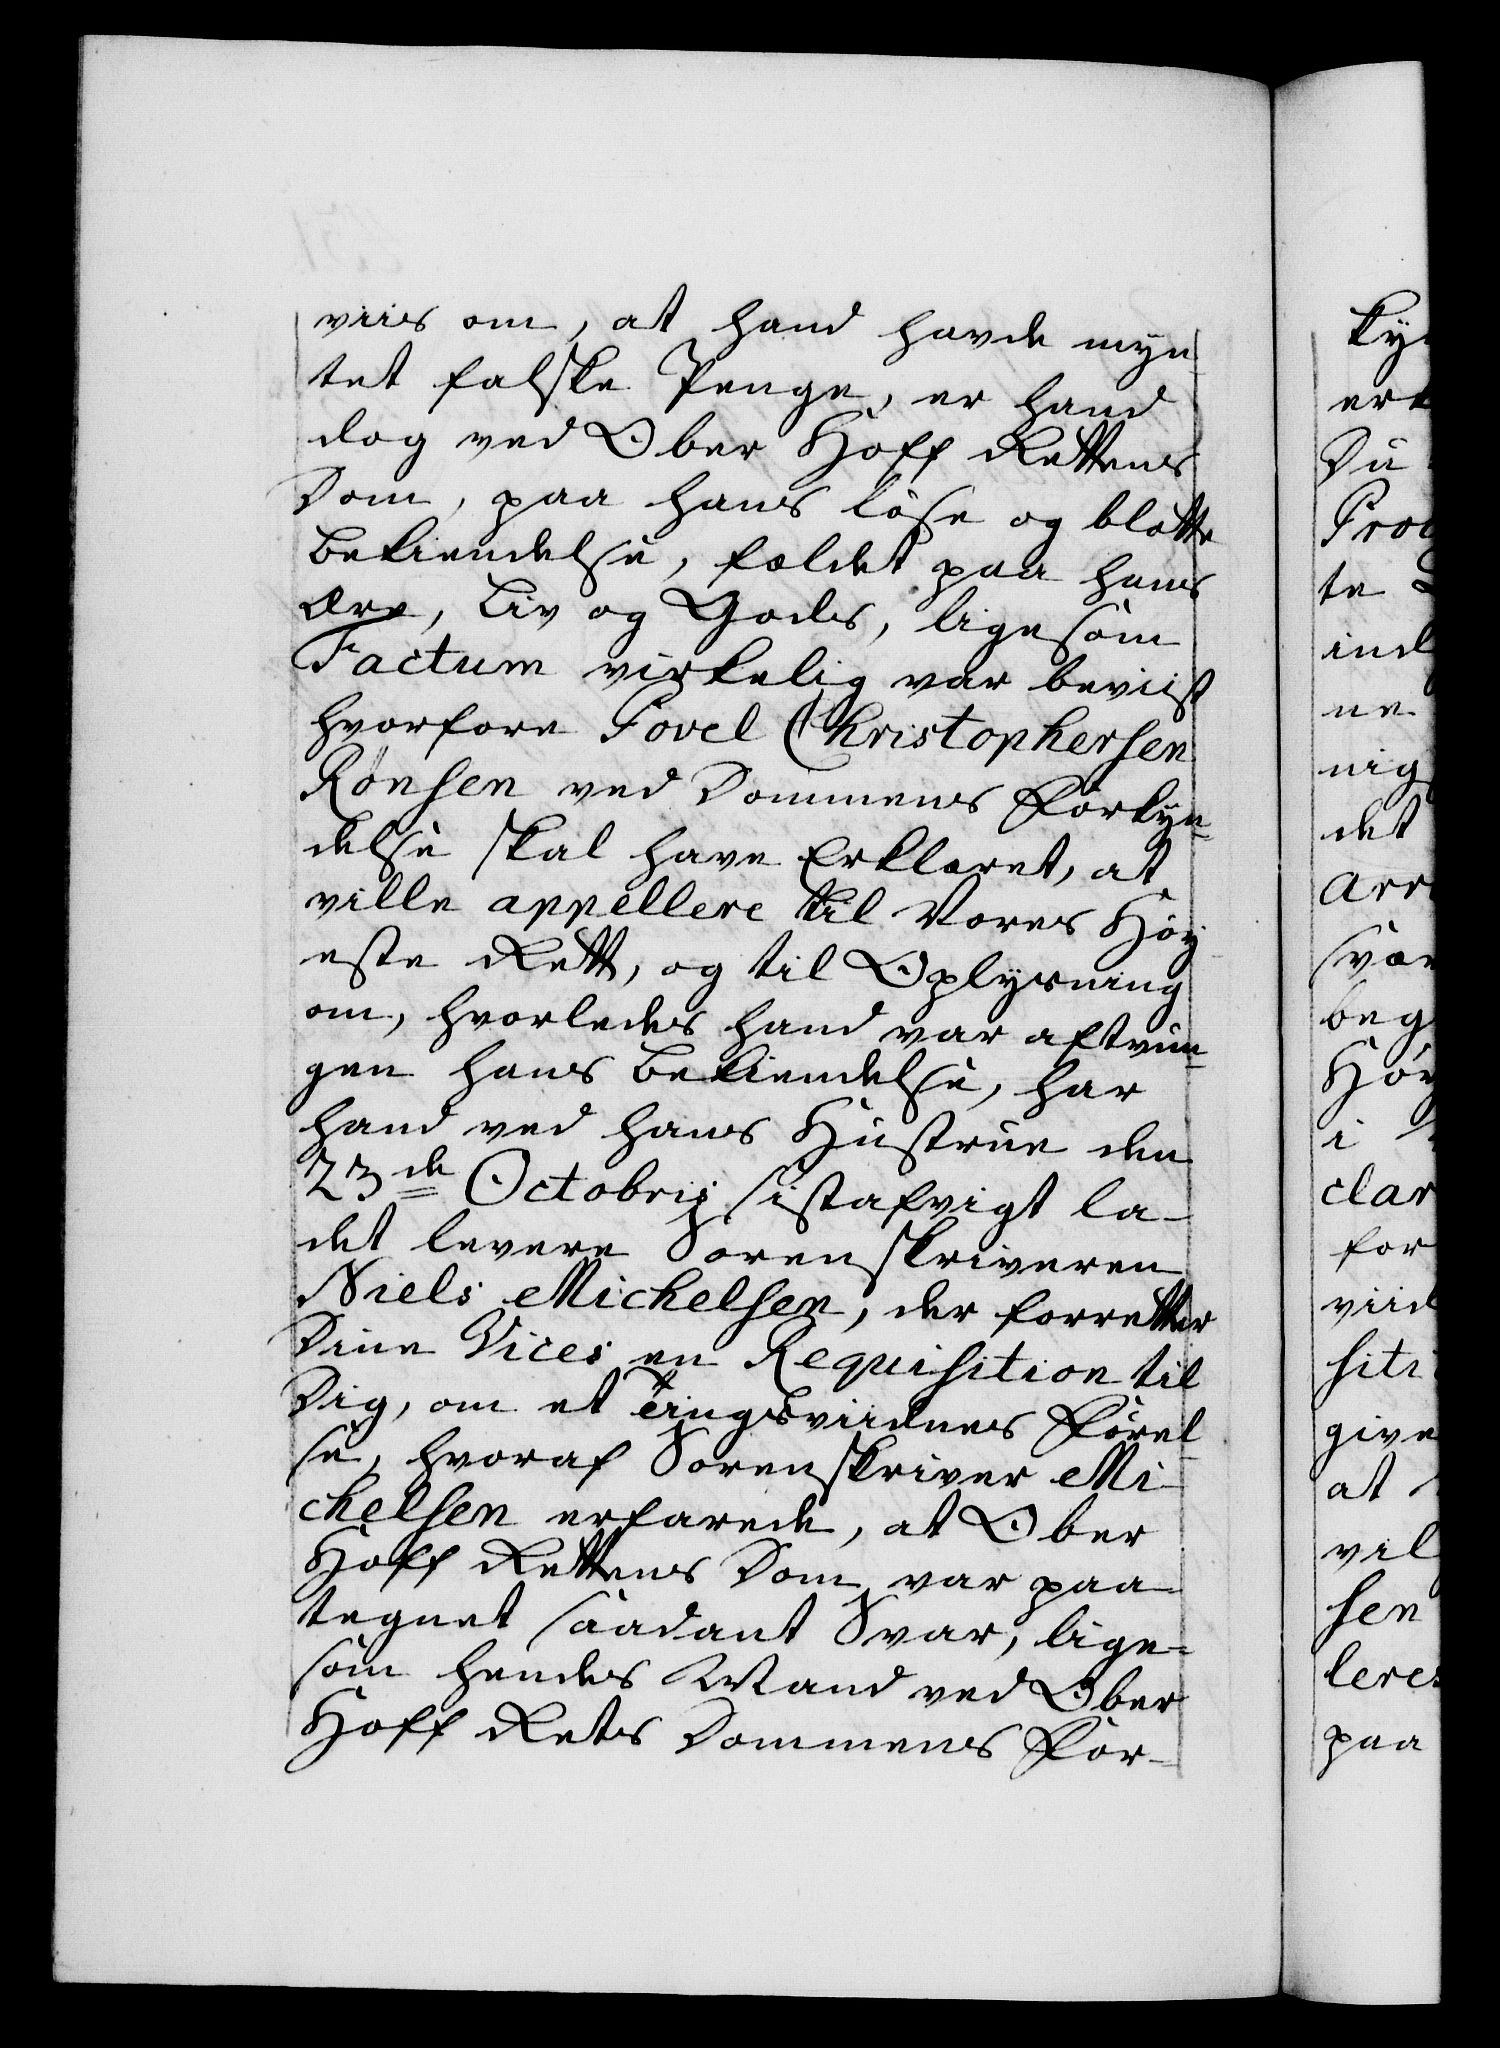 viis om, at hand havde myn
tet falske Penge, er hand
dog ved Ober Hoff Rettens
Dom, paa hans løse og blotte
bekiendelse, fældet paa hans
Ære, Liv og Gods, ligesom
Factum virkelig var beviist
hvorfore Povel Christophersen
Rönsen ved Dommens Forkyn-
delse skal have Erklæret, at
ville appellere til Vores Høy
este Rett, og til Oplysning
om, hvorledes hand var aftvun-
gen hans bekiendelse, har
hand ved hans Hustrue den
23de Octobris sistafvigt la-
det levere Sorenskriveren
Niels Michelsen, der forretter
Dine Vices en Requisition til
Dig, om et Tingsvidnes Førel-
se, hvoraf Sorenskriver Mi-
chelsen erfarede, at Ober
Hoff Rettens Dom var paa-
tegnet saadant Svar, lige-
som hendes Mand ved Ober
Hoff Rets Dommens For-
ert
Du
te
ind
ne
nig
det
beg
i
clar
for
viid
siti
give
at
vil
sen
lere
paa